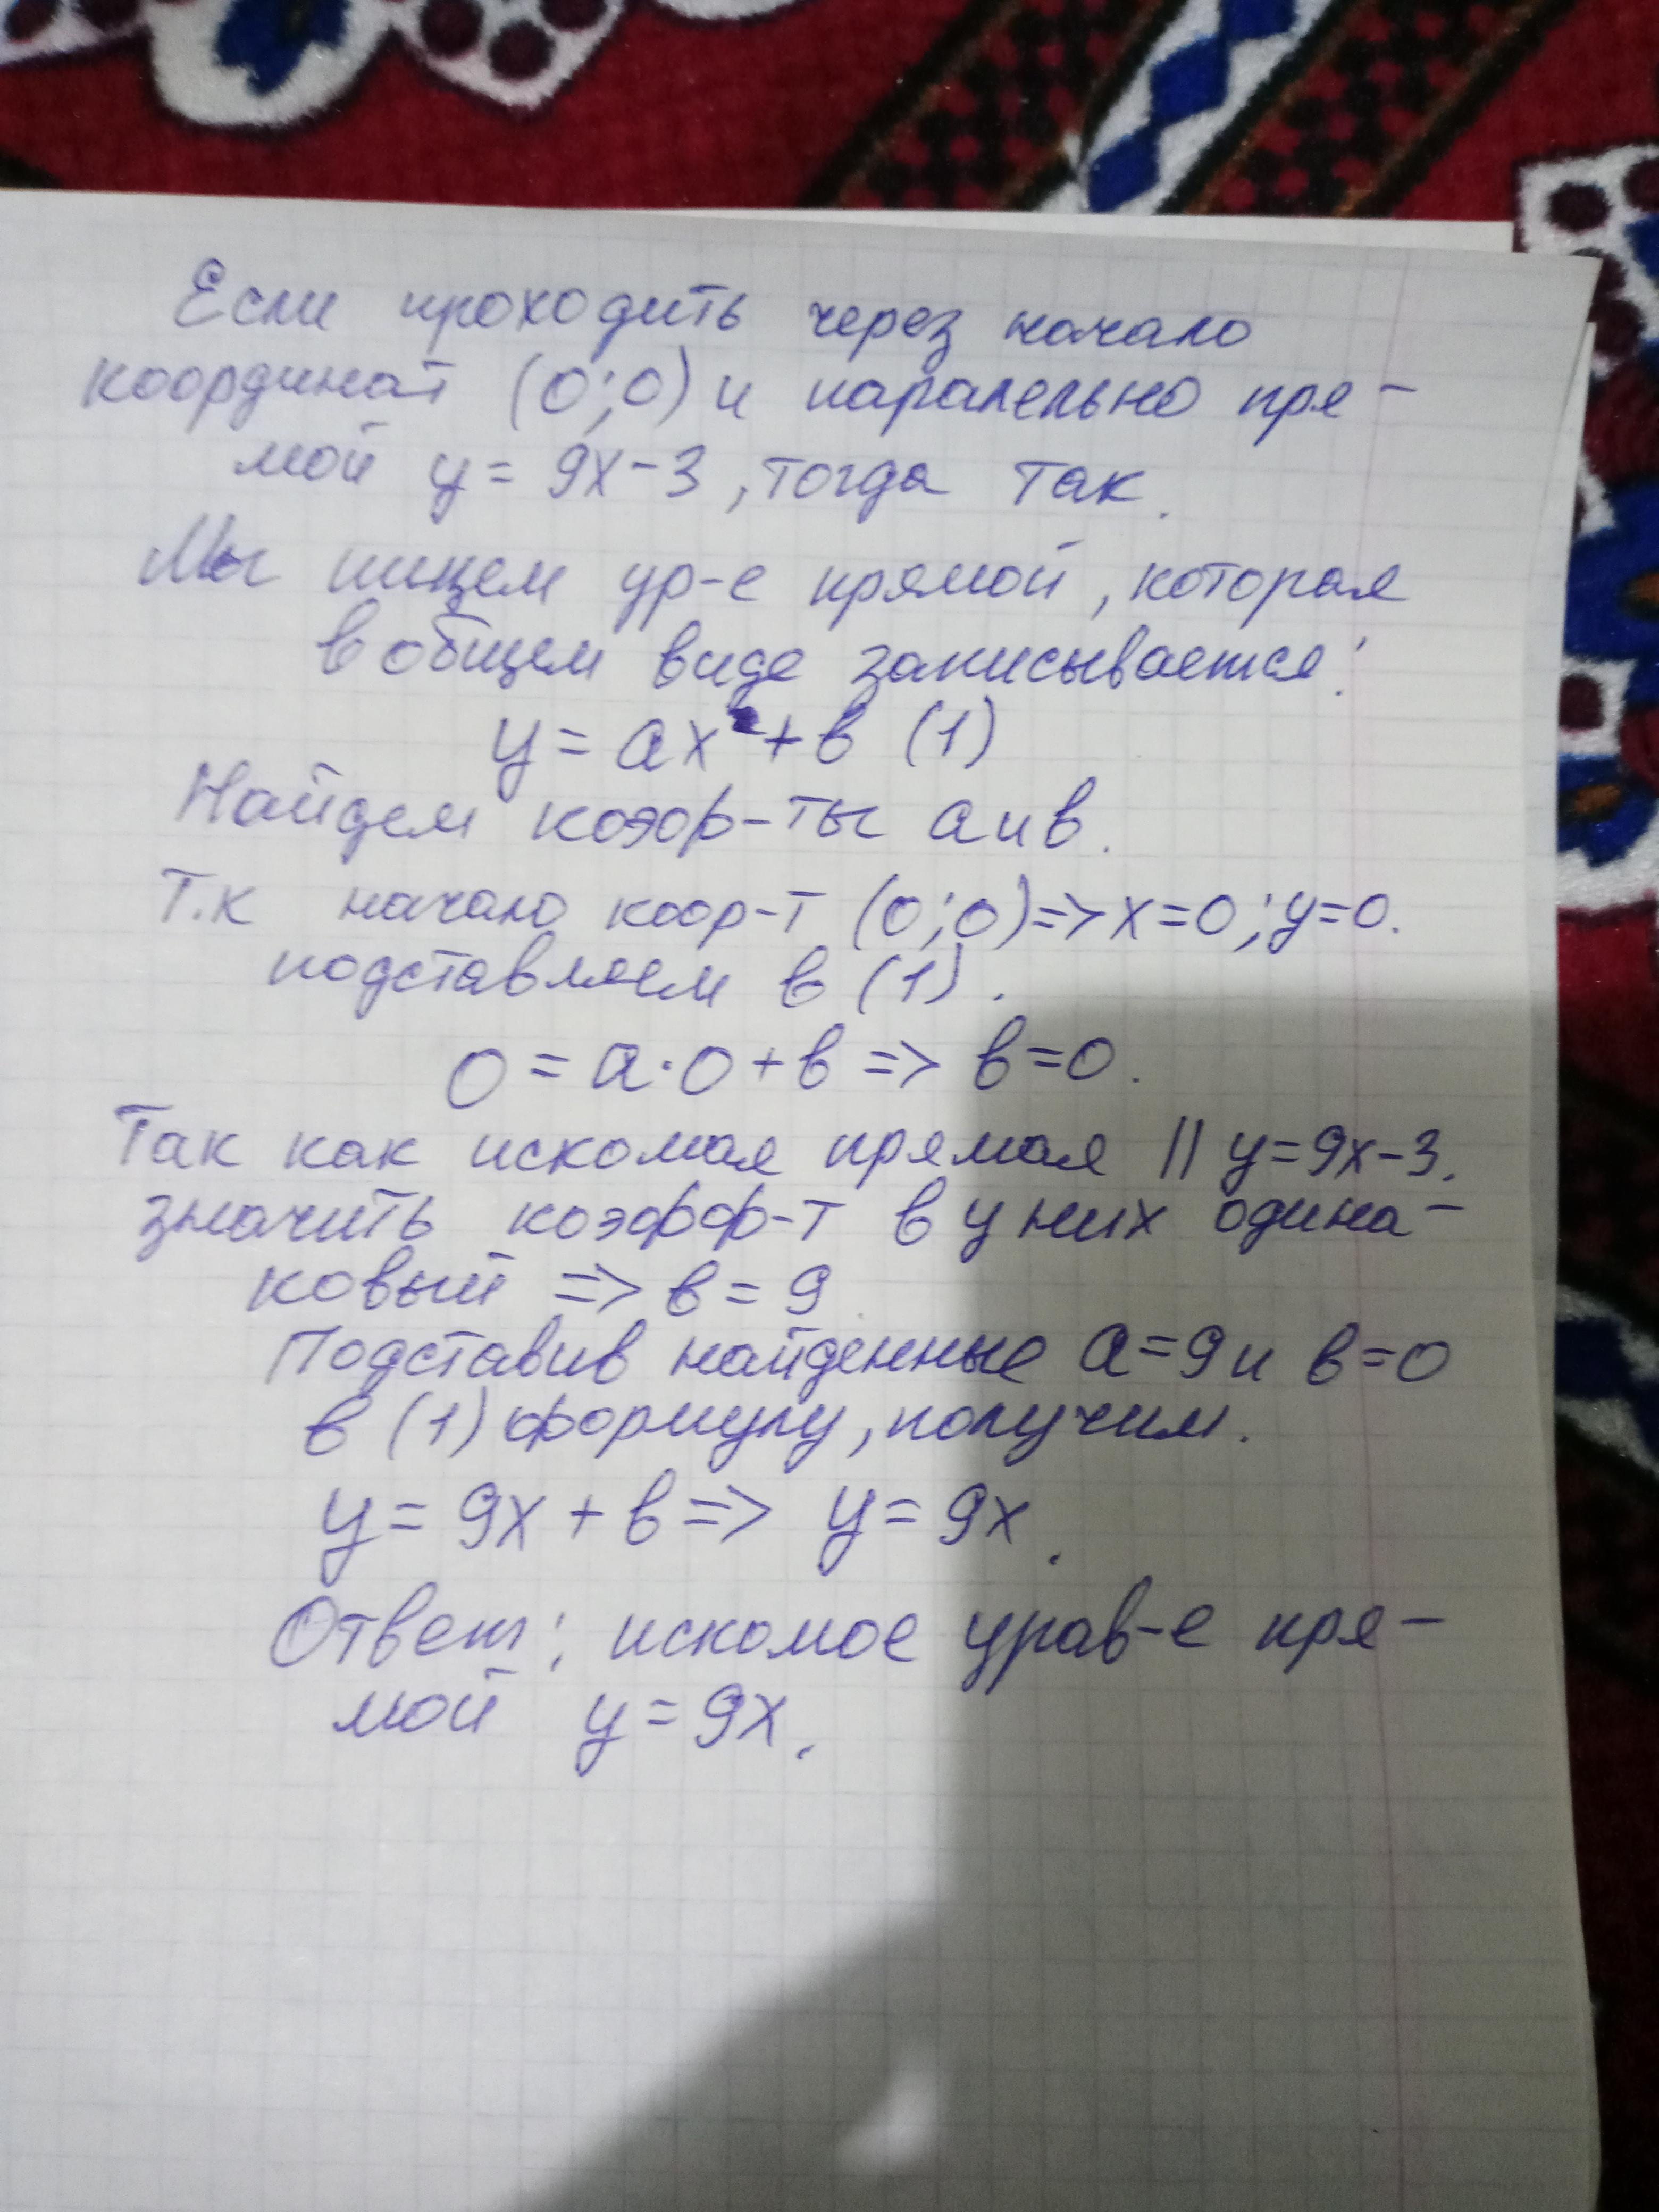 Если проходить через начало
координат (0;0) и паралельно пря-
мой y = 9x-3, тогда так.
Мы ищем ур-е прямой, которая
в общем виде записывается:
y = ax + в (1)
Найдем коэф-ты a и в.
Т.к начало коор-т (0;0)=> x=0; y=0.
подставляем в (1).
0 = a·0 + в => в=0.
Так как искомая прямая || y=9x-3.
значить коэфф-т в у них одина-
ковый => в = 9
Подставив найденные a=9 и в=0
в (1) формулу, получим.
y = 9x + в => y = 9x.
Ответ: искомое урав-е пря-
мой y = 9x.